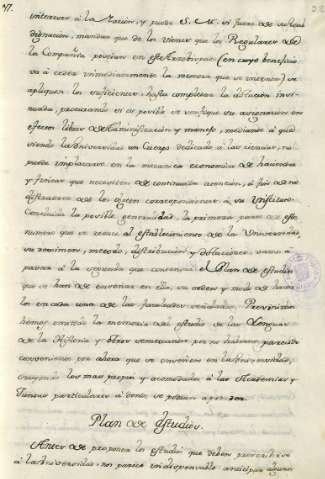 interesar à la Nacion, y puede S. M. si fuere de su Real
dignacion, mandar que de los vienes que los Regulares de
la Compañia poseian en este Arzobispado (en cuyo beneficio
và à ceder inmediatamente la
apliquen los suficientes, hasta completar la dotacion
si es posible se verifique su asignacion en
efectos libres de y manejo, mediante à que
siendo la Universidad un Cuerpo dedicado à las ciencias, no
puede implicarse en la mecanica economica de haciendas
y fincas que necesiten de continuada atencion, à fin de no
distraerse de los objetos correspondientes à su Instituto.
Concluida la posible generalidad la primera parte de este
numero que se reduce al establecimiento de la Universidad,
su regimen, metodo, distribucion y dotaciones, vamos à
pasar à la segunda que contendrà el Plan de estudios
que se han de enseñar en ella, su orden y modo de hacerlo
en cada una de las facultades
hemos omitido la memoria del estudio de las Lenguas
de la Historia y otros semejantes por no haverse parecido
conveniente por ahora que se enseñen en la Universidad,
los mas propio y acomodado à las Academias y
particulares à donde se pueden aprender.
Plan de estudios.
Antes de proponer los estudios que deben prescribirse
à la Universidad, nos parece indispensable anticipar alguna